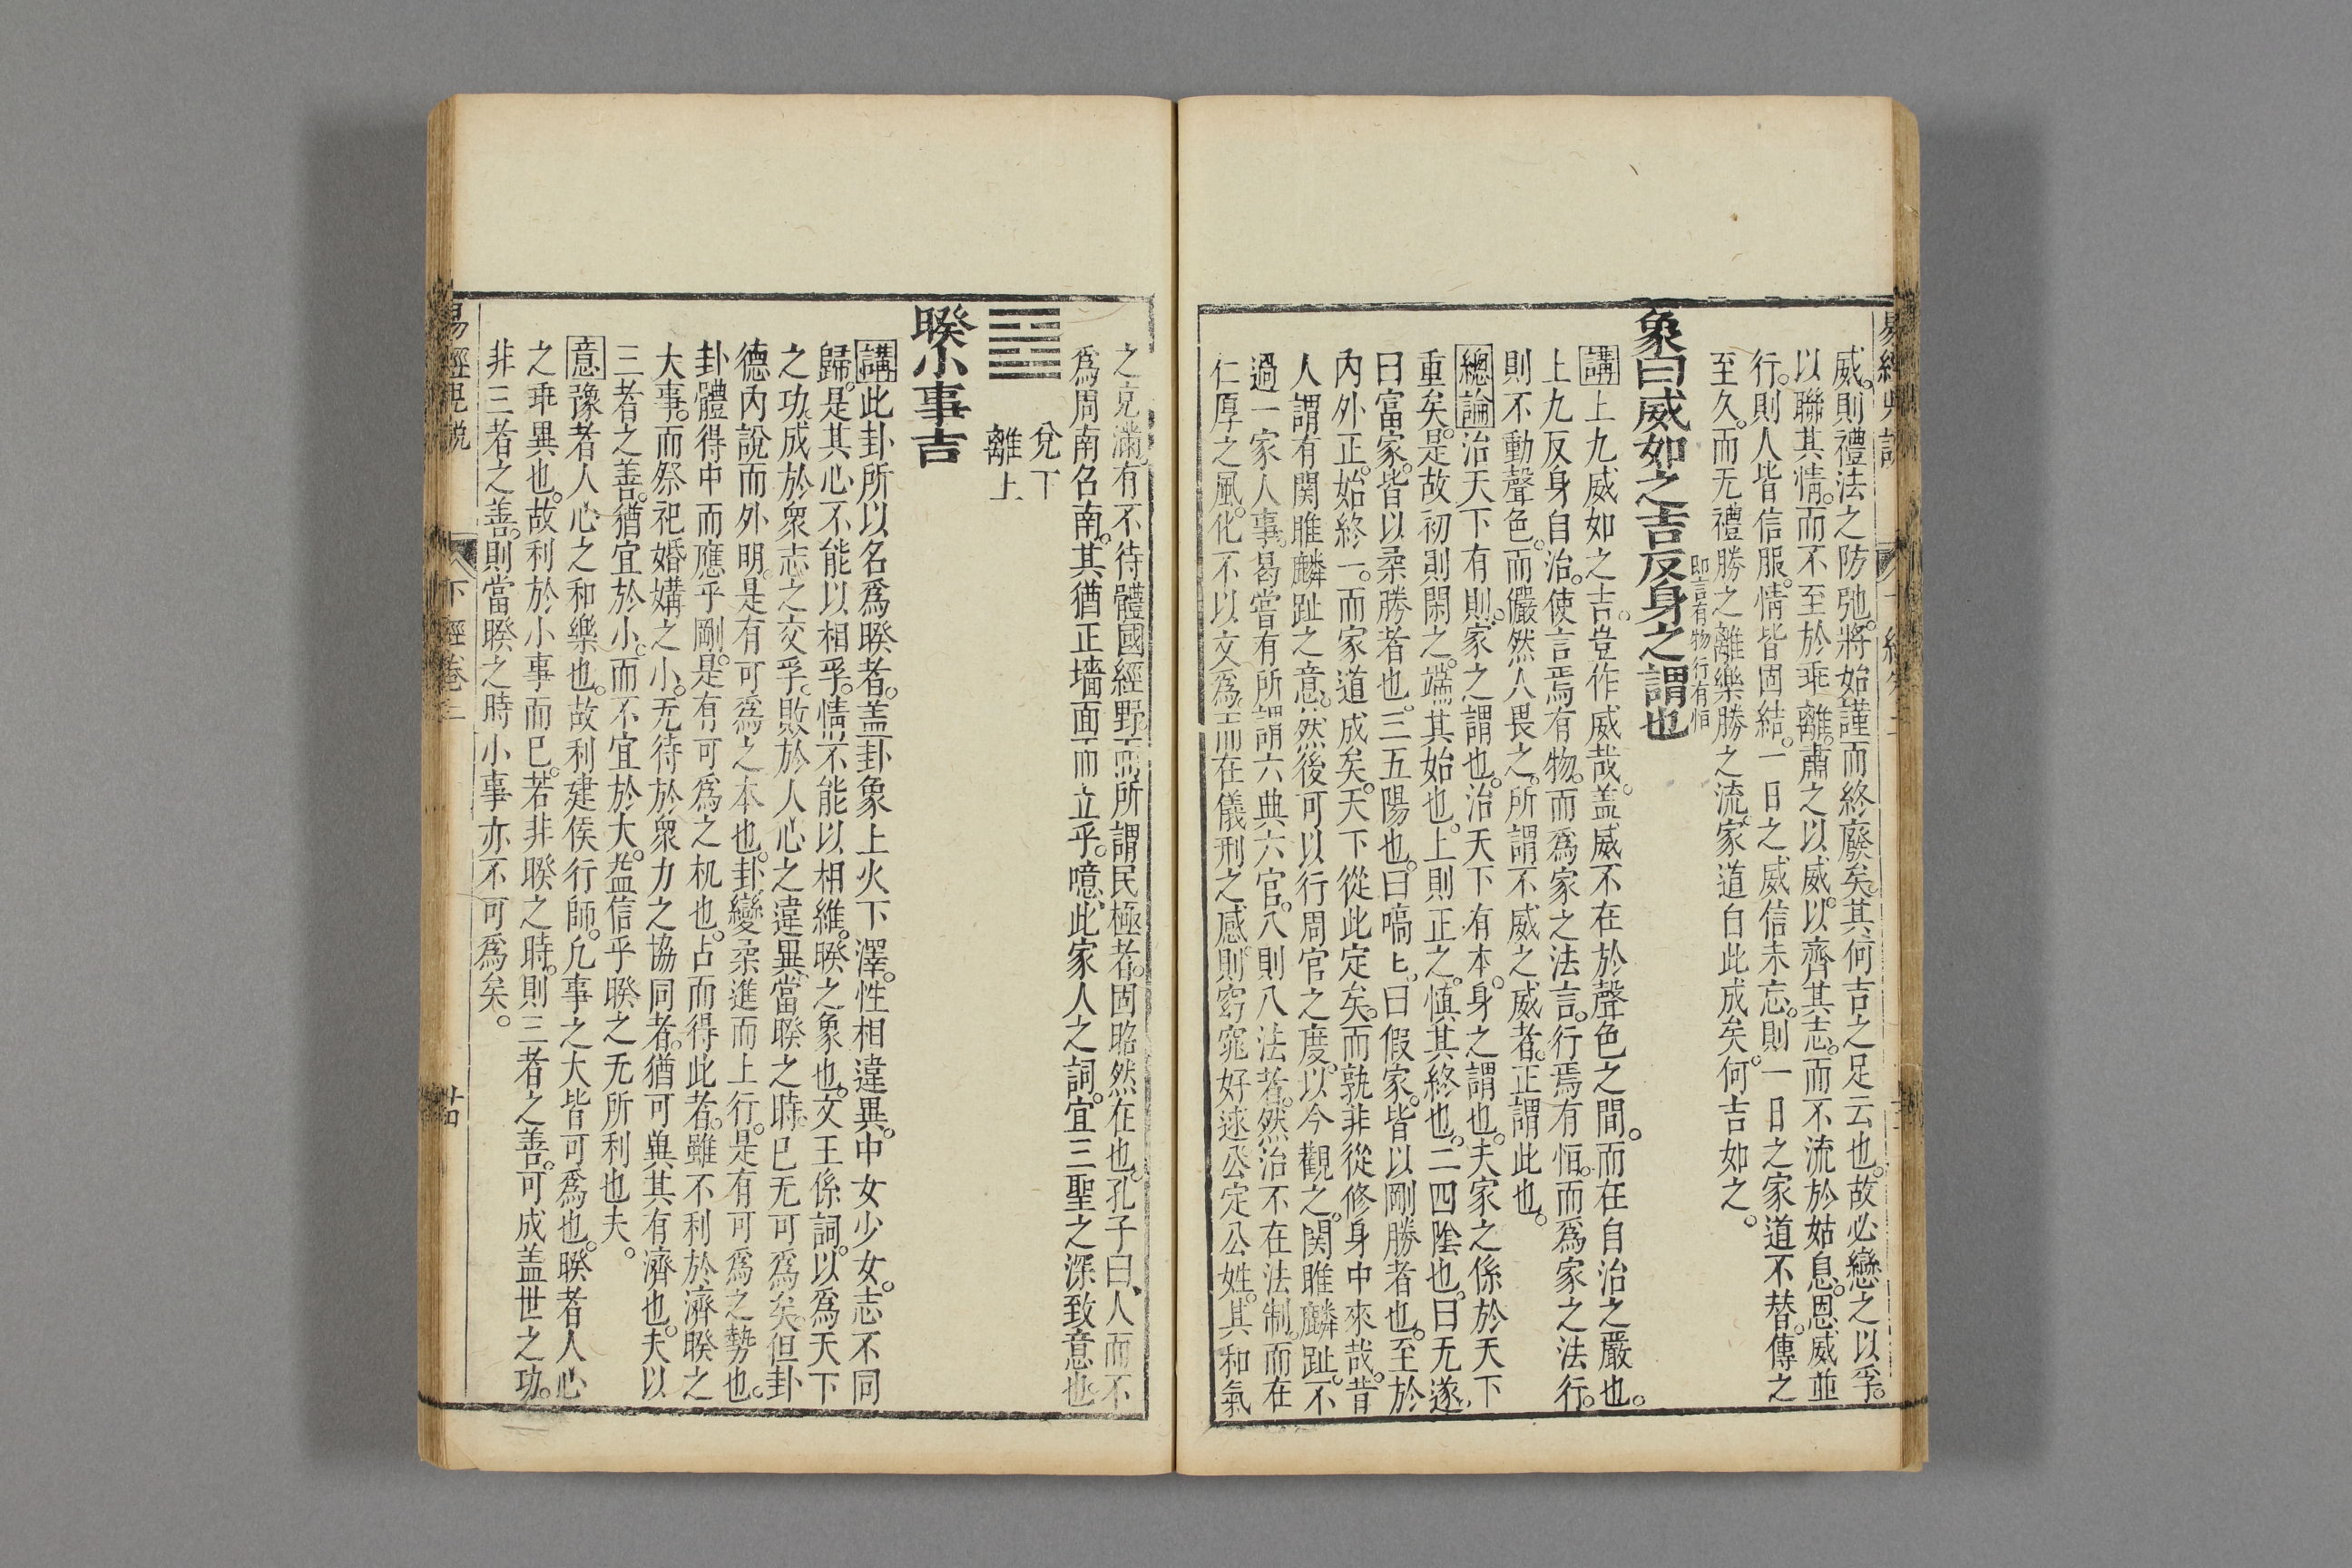 威則禮法之防弛將始謹而終廢矣其何吉之足云也故必戀之以孚
以聯其情而不至於乖離肅之以威以齊其志而不流於姑息恩威並
行則人皆信服情皆固結一日之威信未忘則一日之家道不替傳之
至久而无禮勝之離樂勝之流家道自此成矣何吉如之
象曰威如之吉反身之謂也
即言有物行有恒
講上九威如之吉豈作威哉盖威不在於聲色之間而在自治之嚴也
上九反身自治使言焉有物而爲家之法言行焉有恒而爲家之法行
則不動聲色而儼然人畏之所謂不威之威者正謂此也
總論治天下有則家之謂也治天下有本身之謂也夫家之係於天下
重矣是故初則閑之端其始也上則正之慎其終也二四陰也曰无遂
曰富家皆以柔勝者也三五陽也曰嗃匕曰假家皆以剛勝者也至於
内外正始終一而家道成矣天下從此定矣而孰非從修身中來哉昔
人謂有関雎麟趾之意然後可以行周官之度以今觀之関雎麟趾不
過一家人事曷嘗有所謂六典六官八則八法者然治不在法制而在
仁厚之風化不以文爲而在儀刑之感則窈窕好逑公定公姓其和氣
之充滿有不待體國經野而所謂民極者固昭然在也孔子曰人而不
爲周南召南其猶正墻面而立乎噫此家人之詞宜三聖之深致意也
兌下
離上
睽小事吉
講此卦所以名爲睽者盖卦象上火下澤性相違異中女少女志不同
歸是其心不能以相孚情不能以相維睽之象也文王係詞以爲天下
之功成於衆志之交孚敗於人心之違異當睽之時已无可爲矣但卦
德内說而外明是有可爲之本也卦變柔進而上行是有可爲之勢也
卦體得中而應乎剛是有可爲之机也占而得此者雖不利於濟睽之
大事而祭祀婚媾之小无待於衆力之協同者猶可兾其有濟也夫以
三者之善猶宜於小而不宜於大益信乎睽之无所利也夫
意豫者人心之和樂也故利建侯行師凢事之大皆可爲也睽者人心
之乖異也故利於小事而已若非睽之時則三者之善可成盖世之功
非三者之善則當睽之時小事亦不可爲矣
易經兕說 下經卷三 廿